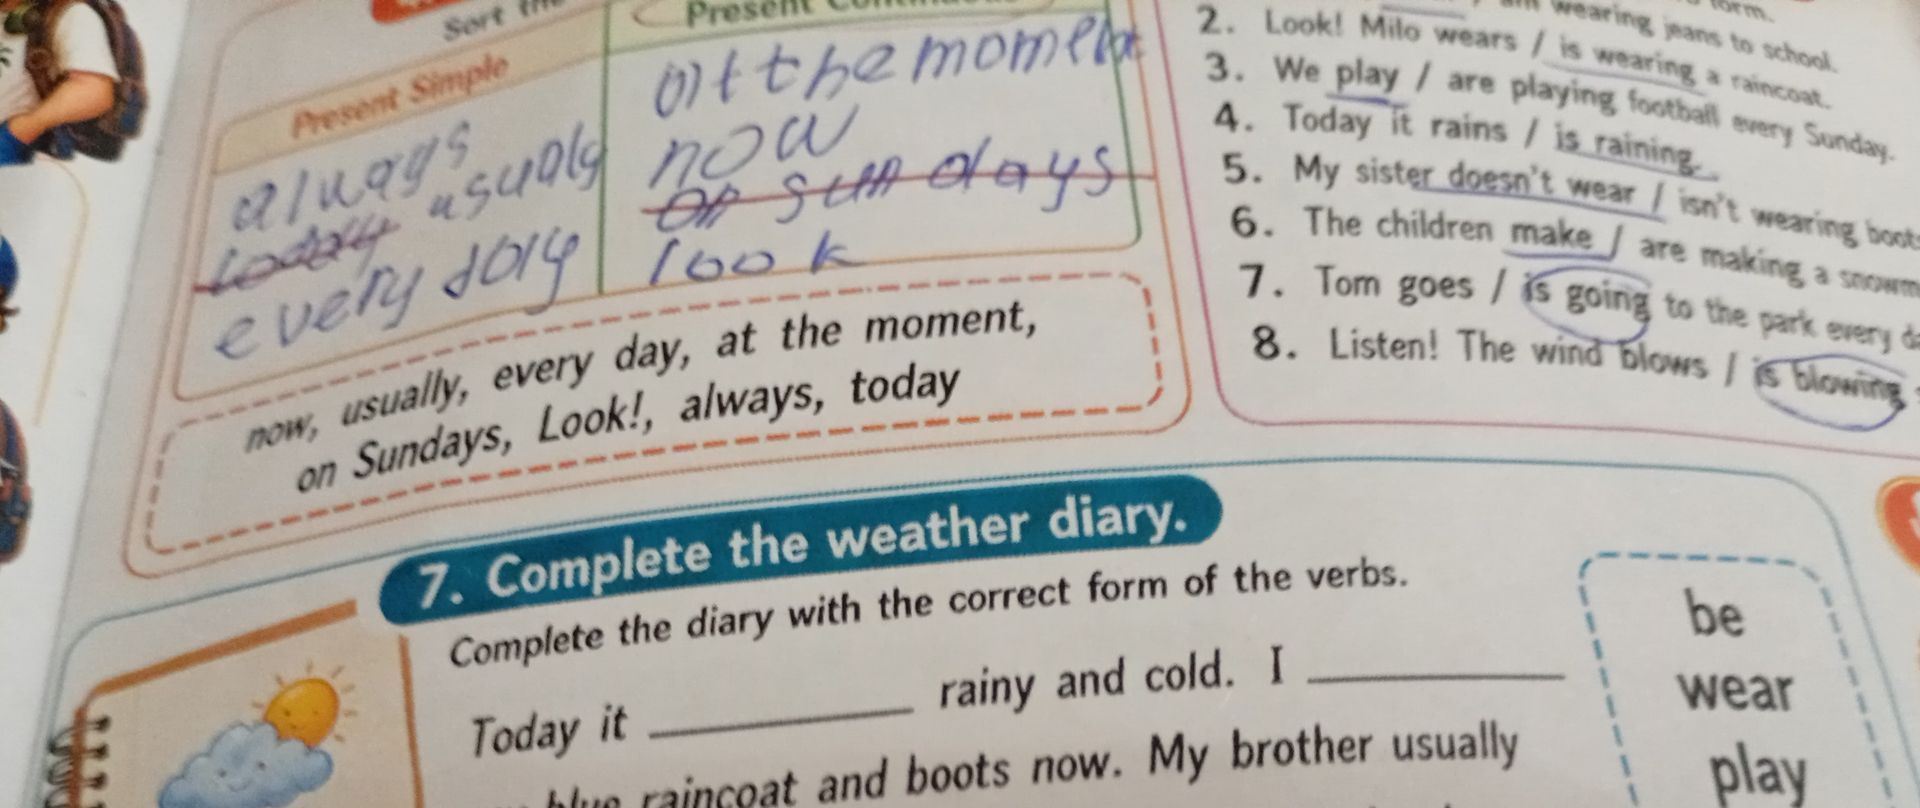 Sort the
Present Simple
Present Continuous
always
today usualy
every day
at the moment
now
on sundays
look
now, usually, every day, at the moment,
on Sundays, Look!, always, today
am wearing jeans to school.
form.
2. Look! Milo wears / is wearing a raincoat.
3. We play / are playing football every Sunday.
4. Today it rains / is raining.
5. My sister doesn't wear / isn't wearing boots
6. The children make / are making a snowm
7. Tom goes / is going to the park every da
8. Listen! The wind blows / is blowing
7. Complete the weather diary.
Complete the diary with the correct form of the verbs.
Today it ________ rainy and cold. I ________
blue raincoat and boots now. My brother usually
be
wear
play